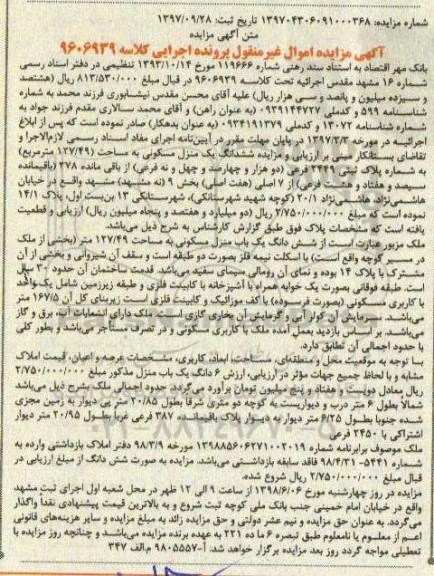 شماره مزایده: ۱۳۹۷۰۴۳۰۶۰۹۱۰۰۰۳۶۸ تاریخ ثبت: ۱۳۹۷/۰۹/۲۸
متن آگهی مزایده
آگهی مزایده اموال غیرمنقول پرونده اجرایی کلاسه ۹۶۰۶۹۳۹
بانک مهر اقتصاد به استناد سند رهنی شماره ۱۱۹۶۶۶ مورخ ۱۳۹۳/۱۰/۱۴ تنظیمی در دفتر اسناد رسمی
شماره ۱۶ مشهد مقدس اجرائیه تحت کلاسه ۹۶۰۶۹۳۹ در قبال مبلغ ۸۱۳/۵۳۰/۰۰۰ ریال (هشتصد
و سیزده میلیون و پانصد و سی هزار ریال) علیه آقای محسن مقدس نیشابوری فرزند محمد به شماره
شناسنامه ۵۹۹ و کدملی ۰۹۳۹۱۴۴۷۲۷ (به عنوان راهن) و آقای محمد سالاری مقدم فرزند جواد به
شماره شناسنامه ۱۳۰۷۲ و کدملی ۰۹۳۴۱۹۱۳۷۹ (به عنوان بدهکار) صادر نموده است که پس از ابلاغ
اجرائیه در مورخه ۱۳۹۷/۳/۳ در پایان مهلت مقرر در آیین‌نامه اجرای مفاد اسناد رسمی لازم‌الاجرا و
تقاضای بستانکار مبنی بر ارزیابی و مزایده ششدانگ یک منزل مسکونی به مساحت (۱۲۷/۴۹ مترمربع)
به شماره پلاک ثبتی ۲۴۴۹ فرعی (دو هزار و چهارصد و چهل و نه فرعی) از باقی مانده ۳۷۸ (باقیمانده
سیصد و هفتاد و هشت فرعی) از ۷ اصلی (هفت اصلی) بخش ۹ (نه مشهد) مشهد واقع در خیابان
هاشمی‌نژاد، هاشمی‌نژاد ۲۰/۱ (کوچه شهید شهرستانکی)، شهرستانکی ۱۳ بن‌بست اول، پلاک ۱۴/۱
نموده است که مبلغ ۲/۷۵۰/۰۰۰/۰۰۰ ریال (دو میلیارد و هفتصد و پنجاه میلیون ریال) ارزیابی و قطعیت
یافته است که مشخصات پلاک فوق طبق گزارش کارشناس به شرح ذیل می‌باشد.
ملک مزبور عبارت است از شش دانگ یک باب منزل مسکونی به مساحت ۱۲۷/۴۹ متر (بخشی از ملک
در مسیر کوچه واقع است) با اسکلت نیمه فلز بصورت دو طبقه است و سقف آن شیروانی و بخشی از آن
مشترک با پلاک ۱۴ بوده و نمای آن رومالی سیمای سفید می‌باشد. قدمت ساختمان آن حدود ۳۰ سال
است. طبقه فوقانی بصورت یک خوابه همراه با آشپزخانه با کابینت فلزی و طبقه زیرزمین شامل یک واحد
با کاربری مسکونی (بصورت فرسوده) با کف موزائیک و کابینت فلزی است زیربنای کل آن ۱۶۷/۵ متر
می‌باشد. سرمایش آن کولر آبی و گرمایش آن بخاری گازی است. ملک دارای انشعابات آب، برق و گاز
می‌باشد. بر اساس بازدید بعمل آمده ملک با کاربری مسکونی و در تصرف مستأجر می‌باشد و بطور کلی
با حدود اجمالی آن تطابق دارد.
با توجه به موقعیت محل و منطقه‌ای، مساحت، ابعاد، کاربری، مشخصات عرصه و اعیان، قیمت املاک
مشابه و با لحاظ جمیع جهات مؤثر در ارزیابی، ارزش ۶ دانگ یک باب منزل مذکور مبلغ ۲/۷۵۰/۰۰۰/۰۰۰
ریال معادل دویست و هفتاد و پنج میلیون تومان برآورد می‌گردد. حدود اجمالی ملک بشرح ذیل می‌باشد
شمالا بطول ۶ متر درب و دیواریست به کوچه دو متری شرقا بطول ۲۰/۸۵ متر پی دیوار به زمین مجزی
شده جنوبا بطول ۶/۲۵ متر دیوار به دیوار پلاک باقیمانده ۳۸۷ فرعی غربا بطول ۲۰/۹۵ متر دیوار
اشتراکی با ۲۴۵۰ فرعی
ملک موصوف برابرنامه شماره ۱۳۹۸۸۵۶۰۶۲۷۱۰۰۲۰۱۹ مورخه ۹۸/۳/۹ دفتر املاک بازداشتی وارده به
شماره ۵۴۴۱-۹۸/۴/۳۱ فاقد سابقه بازداشتی می‌باشد. مزایده به صورت شش دانگ از مبلغ ارزیابی در
قبال مبلغ ۲/۷۵۰/۰۰۰/۰۰۰ ریال شروع شده.
مزایده در روز چهارشنبه مورخ ۱۳۹۸/۶/۰۶ از ساعت ۹ الی ۱۲ ظهر در محل شعبه اول اجرای ثبت مشهد
واقع در خیابان امام خمینی جنب بانک ملی کوچه ثبت شروع و به بالاترین قیمت پیشنهادی نقدا واگذار
می‌گردد. به عنوان حق مزایده و نیم عشر دولتی و حق مزایده زائد به مبلغ مزایده و سایر هزینه‌های قانونی
اعم از معلوم یا نامعلوم طبق تبصره ۶ ماده ۲۲۱ به عهده برنده مزایده می‌باشد و چنانچه روز مزایده با
تعطیلی مواجه گردد روز بعد مزایده برگزار خواهد شد. آ-۹۸۰۵۵۵۷ م.الف ۳۴۷